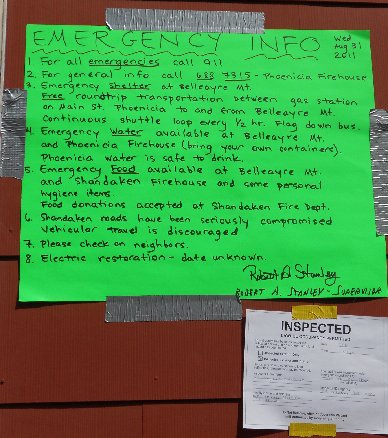 EMERGENCY INFO
Wed
Aug 31
2011
1. For all emergencies call 911
2. For general info call 688 7315 - Phoenicia Firehouse
3. Emergency Shelter at Belleayre Mt.
Free roundtrip transportation between gas station
on Main St. Phoenicia to and from Belleayre Mt.
Continuous shuttle loop every 1/2 hr. Flag down bus.
4. Emergency Water available at Belleayre Mt.
and Phoenicia Firehouse (bring your own containers).
Phoenicia water is safe to drink.
5. Emergency Food available at Belleayre Mt.
and Shandaken Firehouse and some personal
hygiene items.
Food donations accepted at Shandaken Fire Dept.
6. Shandaken roads have been seriously compromised
Vehicular travel is discouraged
7. Please check on neighbors.
8. Electric restoration - date unknown.
Robert A Stanley
ROBERT A. STANLEY - SUPERVISOR
INSPECTED